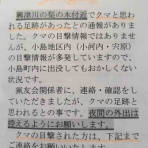 興津川の梨の木付近でクマと思わ
れる足跡があったとの通報がありまし
た。クマの目撃情報ではありませ
んが、小島地区内(小河内・宍原)
の目撃情報が多発していますので、
小島町内に出没してもおかしくない
状況です。
猟友会関係者に、連絡・確認をし
ていただきましたが、クマの足跡と
思われるとの事です。夜間の外出は
控えるようにお願いします。
クマの目撃された方は、下記まで
ご連絡をお願いいたします。